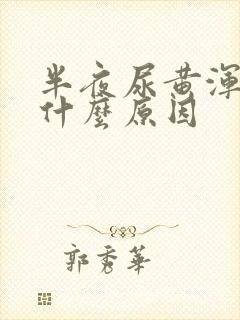 半夜尿黄渾
什麼原因
郭秀華